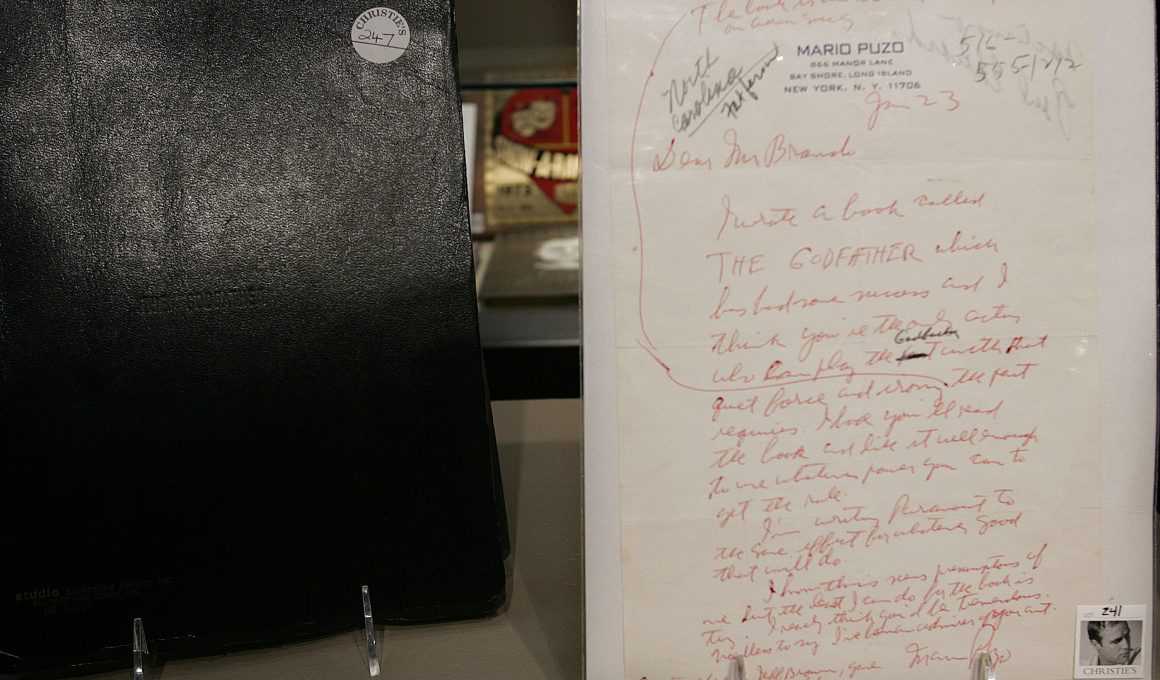 CHRISTIE'S
247
THE GODFATHER
studio duplicating service, inc.
MARIO PUZO
866 MANOR LANE
BAY SHORE, LONG ISLAND
NEW YORK, N. Y. 11706
516-
555-1212
North
Carolina
Jan 23
Dear Mr Brando
I wrote a book called
THE GODFATHER which
has had some success and I
think you're the only actor
Godfather
who can play the part with that
quiet force and irony the part
requires. I hope you'll read
the book and like it well enough
to use whatever power you can to
get the role.
I'm writing Paramount to
the same effect for whatever good
that will do.
I know this is presumptuous of
me but the least I can do for the book is
try. I really think you'd be tremendous.
Needless to say I've been an admirer of your art.
Mario Puzo
Jeff Brown, gave
LOT 241
CHRISTIE'S